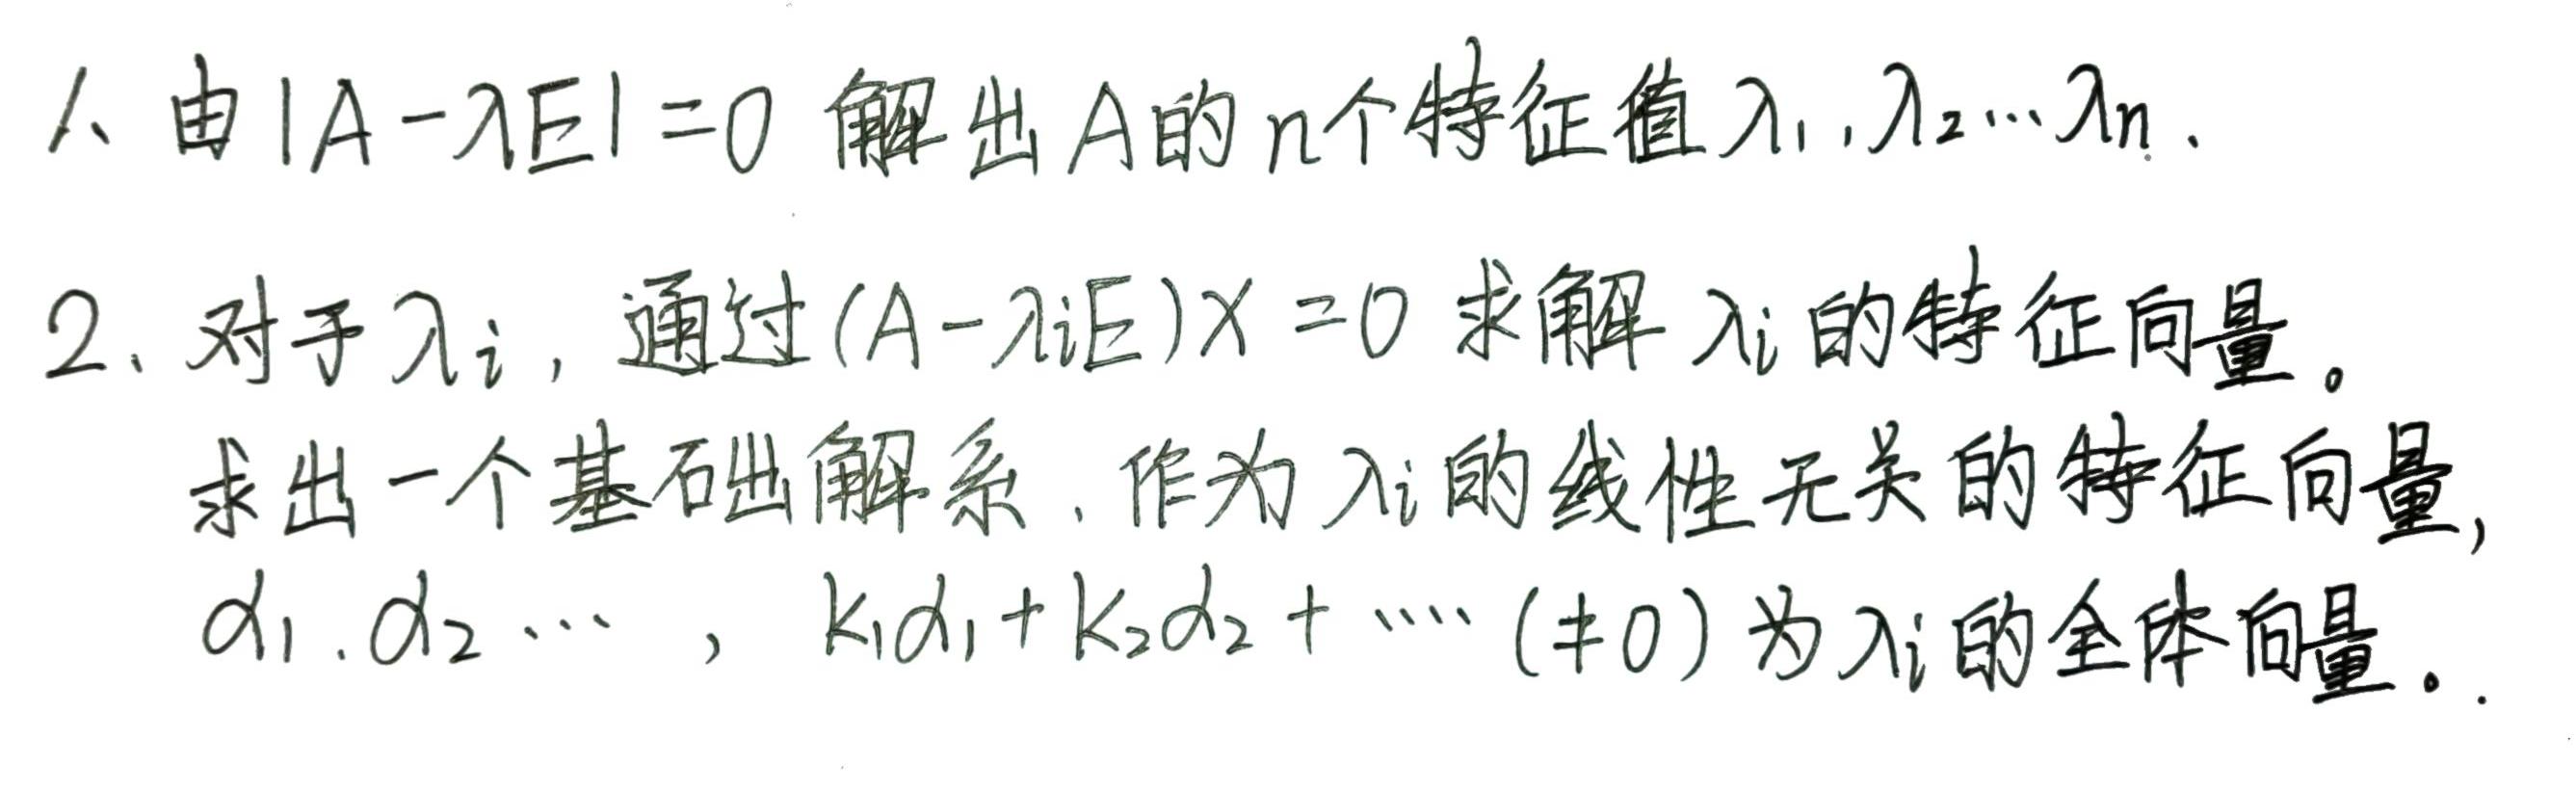 1、由|A-λE|=0 解出A的n个特征值λ₁,λ₂…λn.
2、对于λi,通过(A-λiE)X=0 求解λi的特征向量。
求出一个基础解系、作为λi的线性无关的特征向量,
α₁.α₂… , k₁α₁+k₂α₂+……(≠0)为λi的全体向量..